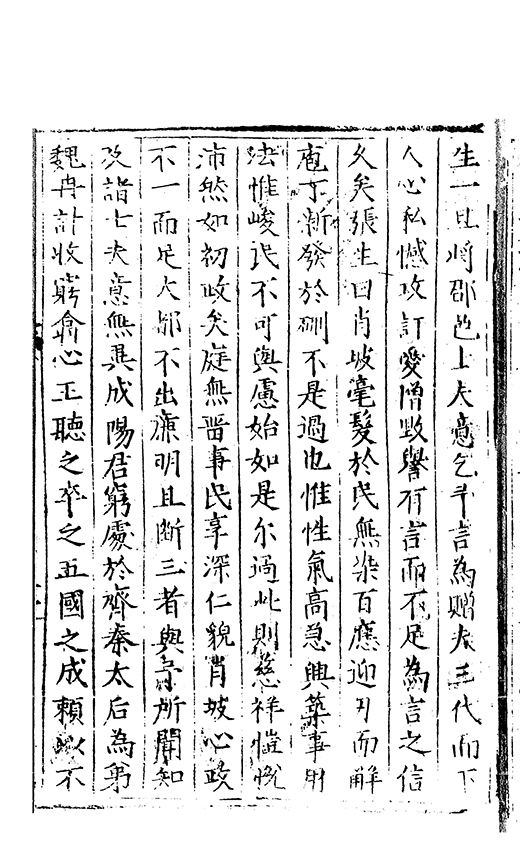 生一旦將郡邑士夫意乞半言為贈夫三代而下
人心私憾攻訂愛憎毀譽有言而不足為言之信
久矣張生曰肖坡毫髮於民無染百應迎刃而解
庖丁新發於硎不是過也惟性氣高急興築事用
法惟峻民不可與慮始如是尔過此則慈祥愷悅
沛然如初政矣庭無啚事民享深仁貌肖坡心政
不一而足大都不出廉明且斷三者與予所聞知
及諸士夫意無異成陽君窮處於齊秦太后為弟
魏冉計收窮翕心王聽之卒之五國之成賴以不